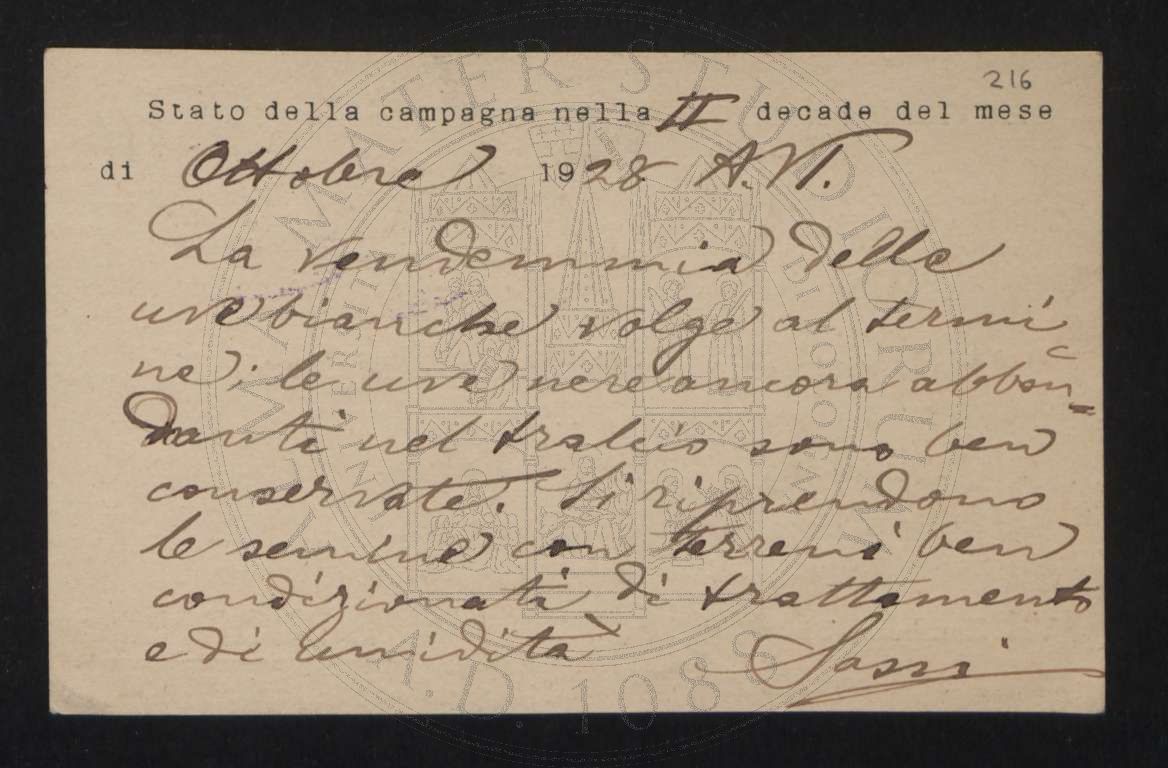 216
Stato della campagna nella II decade del mese
di Ottobre 1928 A. VI.
La vendemmia delle
uve bianche volge al termi
ne; le uve nere ancora abbon-
danti nel tralcio sono ben
conservate. Si riprendono
le semine con terreni ben
condizionati di trattamento
e di umidità
Sassi
ALMA MATER STUDIORUM
UNIVERSITÀ DI BOLOGNA
A.D. 1088